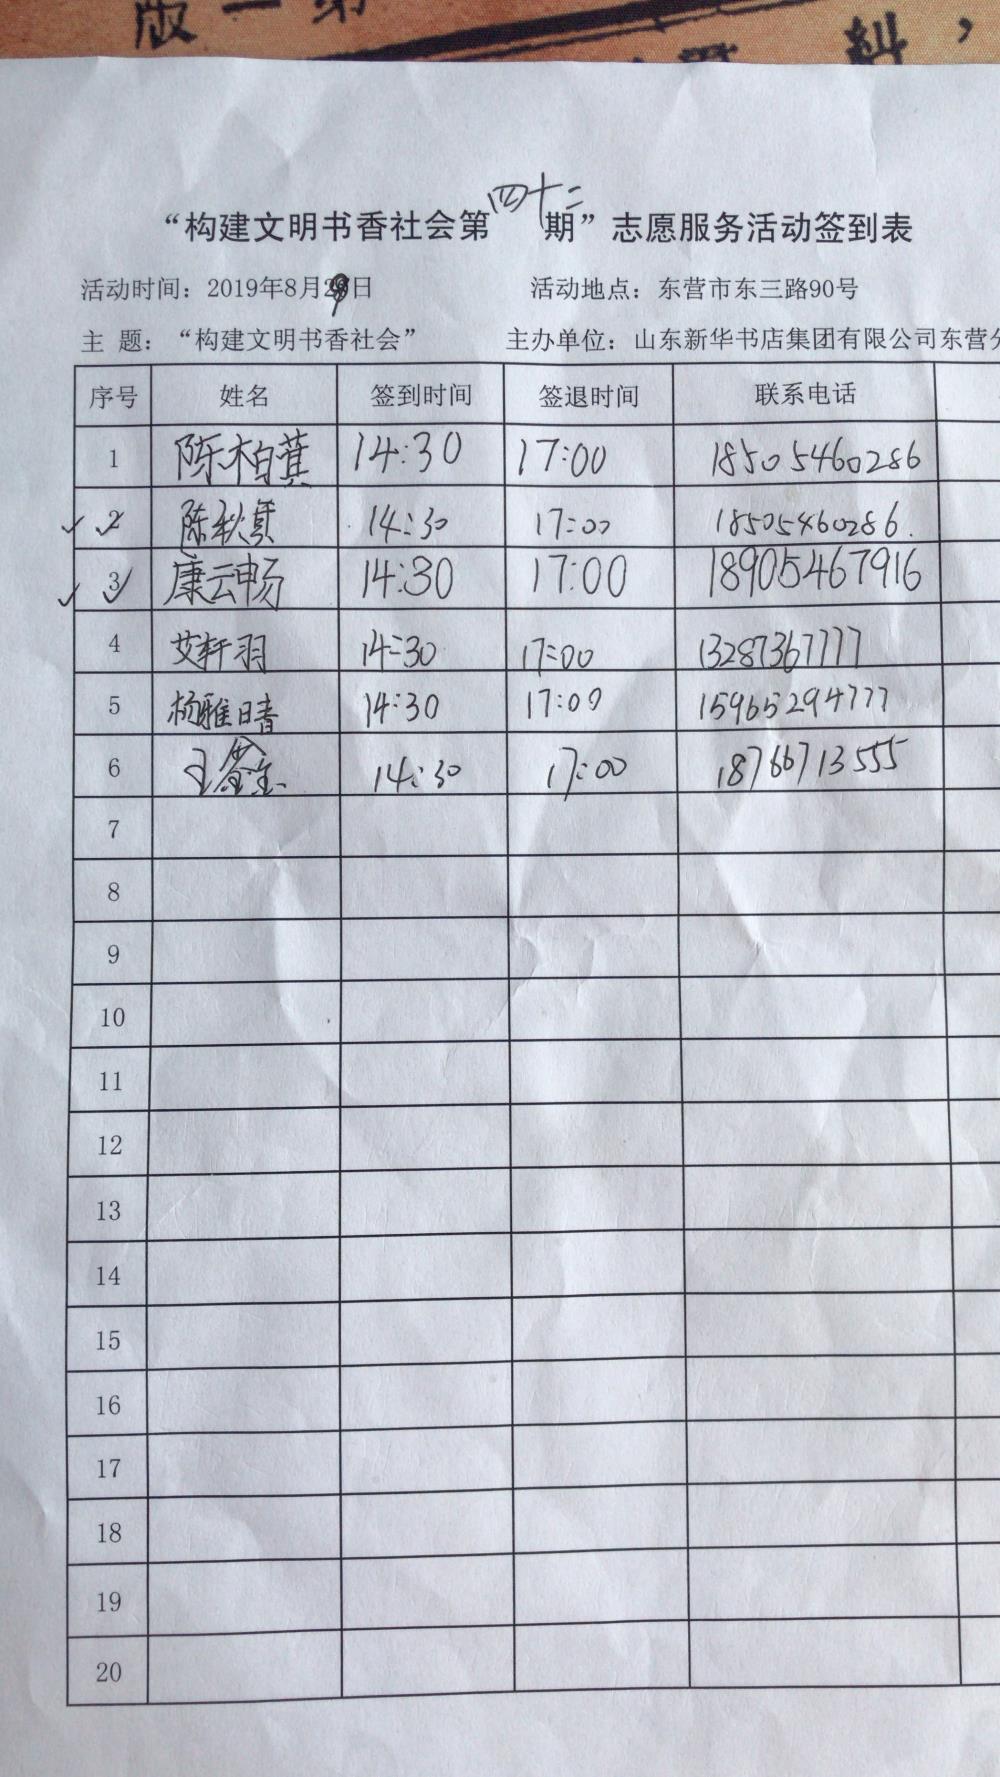 版一第
糾，
“构建文明书香社会第四十二期”志愿服务活动签到表
活动时间：2019年8月29日 活动地点：东营市东三路90号
主 题：“构建文明书香社会” 主办单位：山东新华书店集团有限公司东营分
序号 姓名 签到时间 签退时间 联系电话
1 陈柏蓂 14:30 17:00 18505460286
2 陈秋 14:30 17:00 18505460286.
3 康云畅 14:30 17:00 18905467916
4 艾轩羽 14:30 17:00 13287367777
5 杨雅晴 14:30 17:00 15965294777
6 王 14:30 17:00 18766713555
7
8
9
10
11
12
13
14
15
16
17
18
19
20